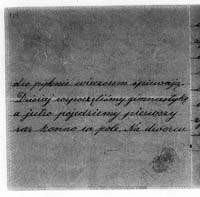 dzo pięknie wieczorem śpiewają.
Dzisiaj rozpoczęliśmy gimnastykę
a jutro pojedziemy pierwszy
raz konno w pole. Na dworcu